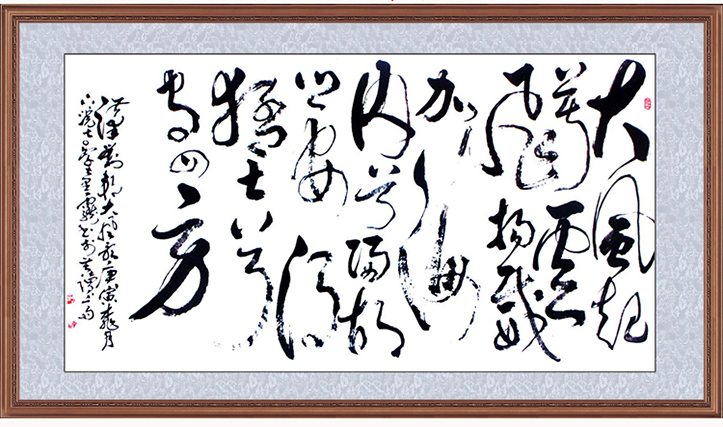 大風起
兮雲
飛揚威
加海
内兮歸故
鄉安得
猛士兮
守四方
漢劉邦大風歌庚寅桃月